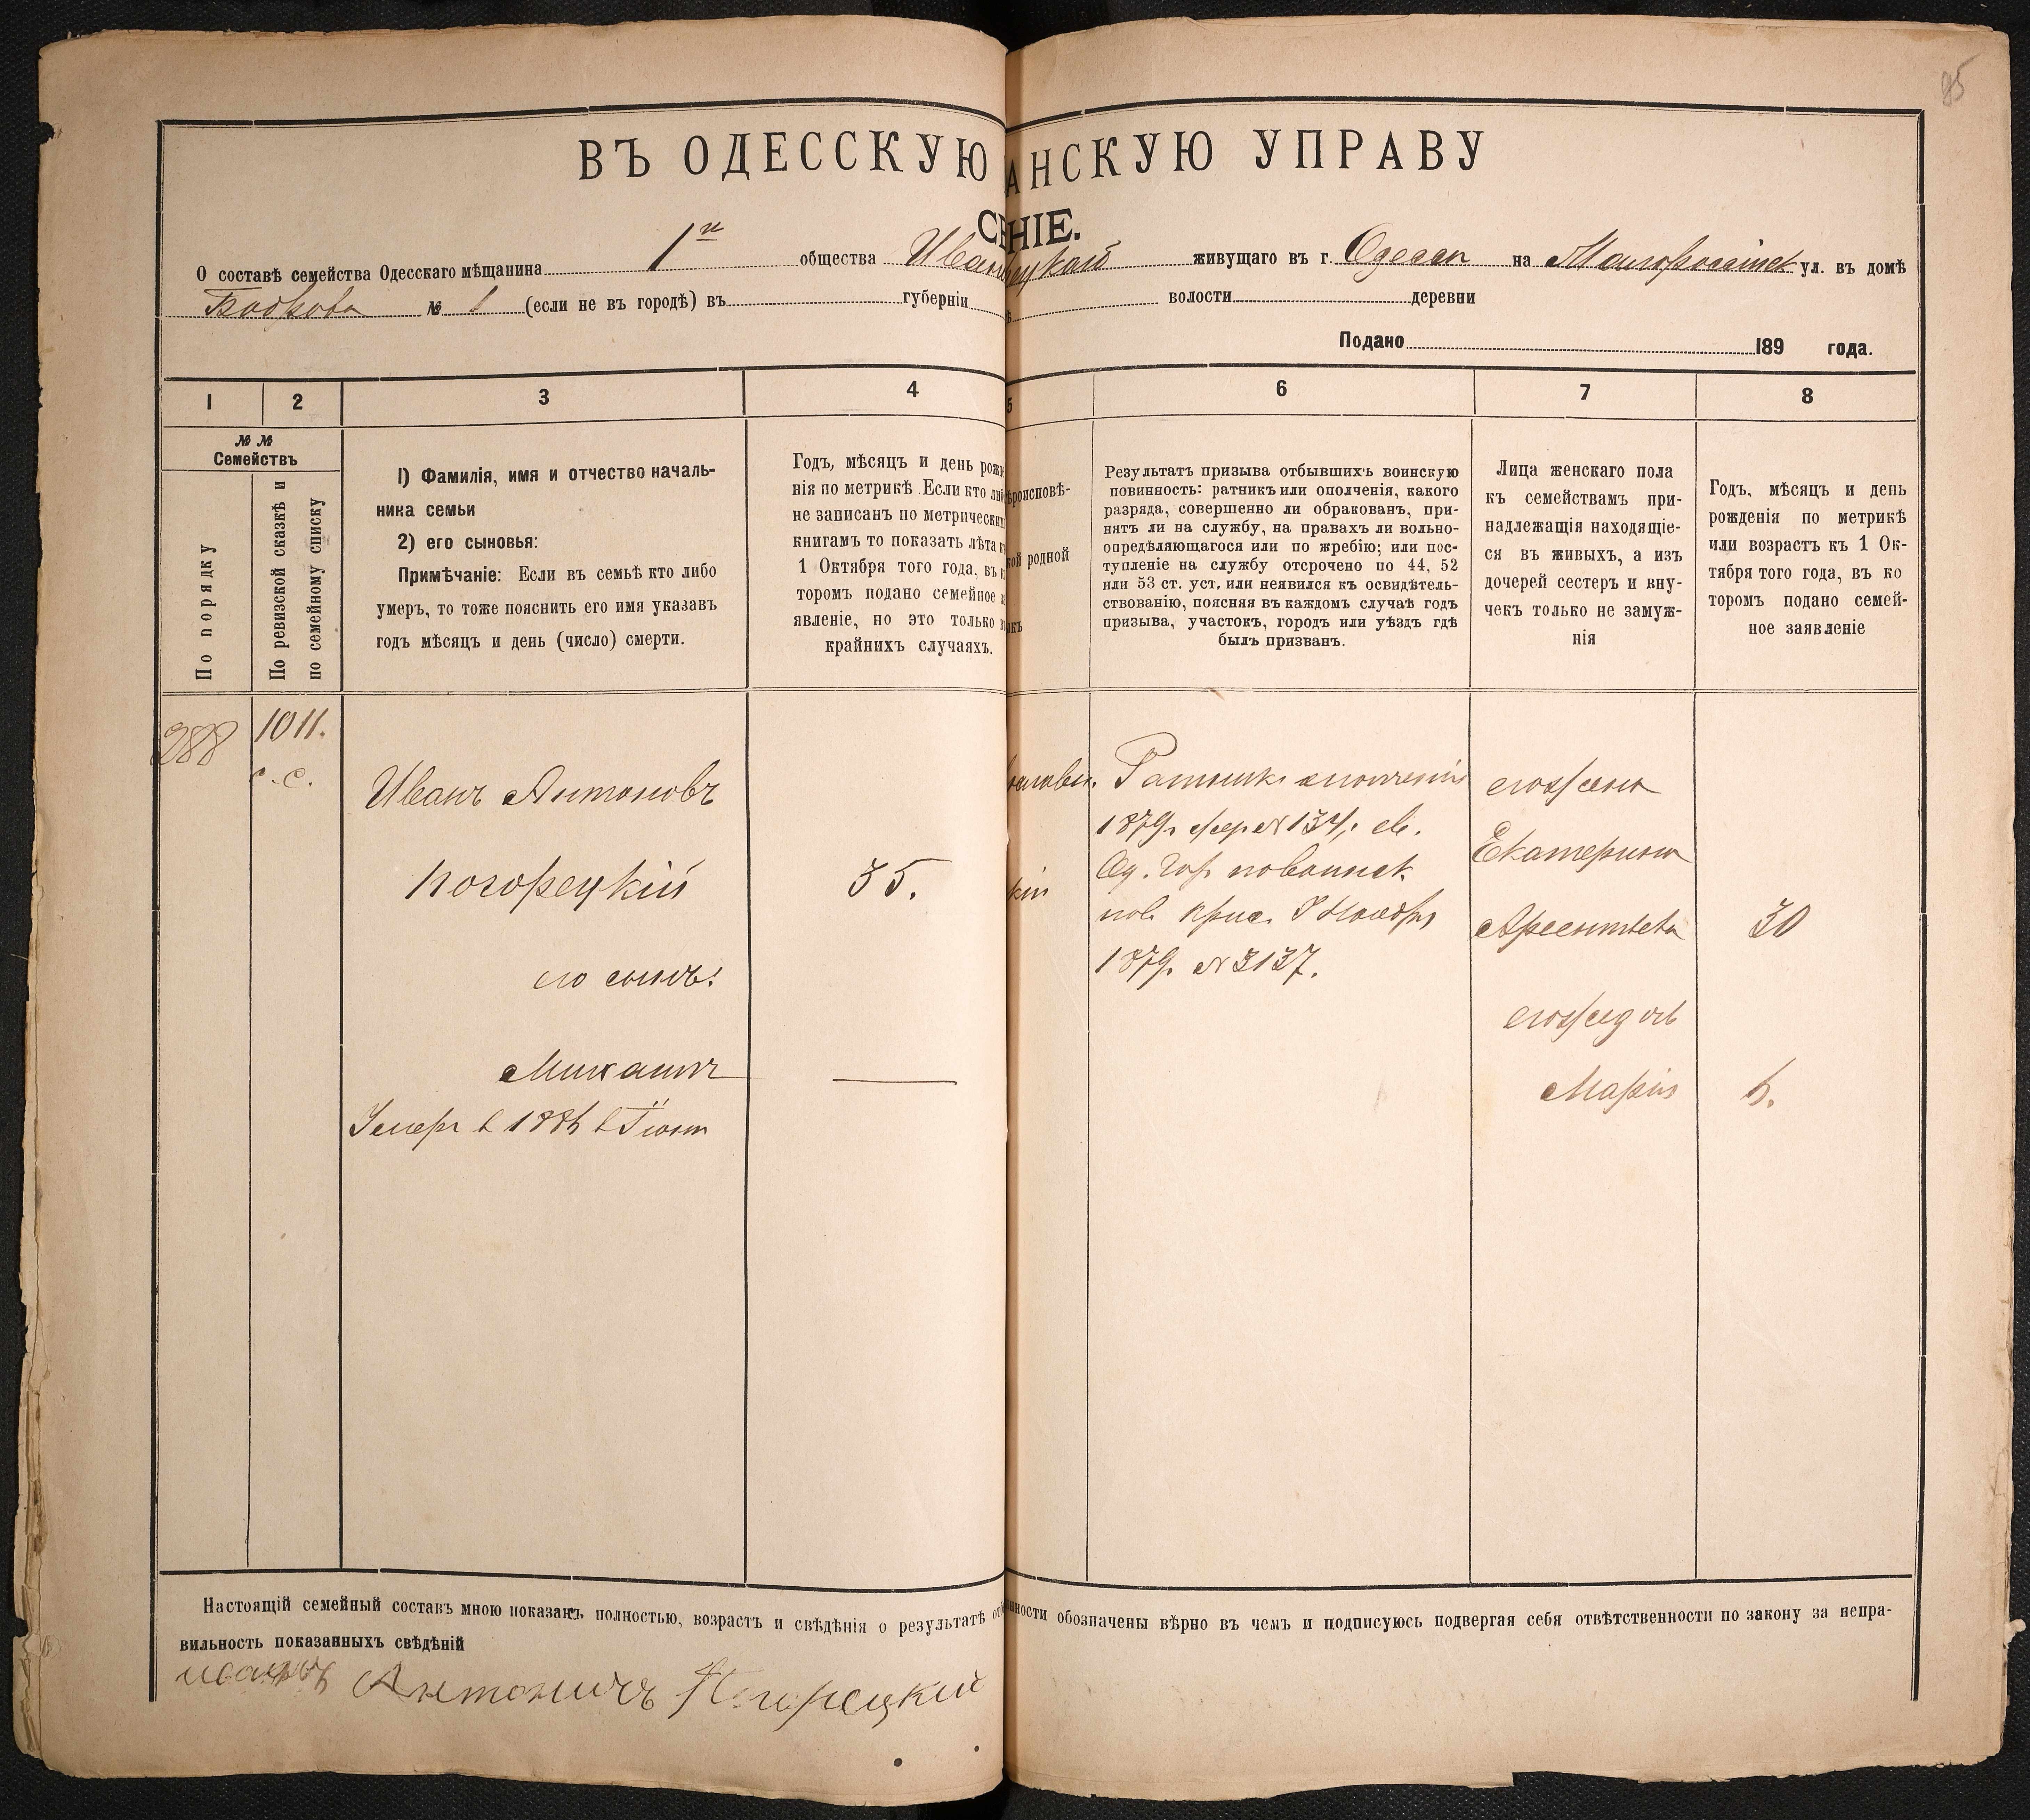 85
ВЪ ОДЕССКУЮ АНСКУЮ УПРАВУ
СЕНІЕ.
О составѣ семейства Одесскаго мѣщанина 1го общества живущаго въ г. Одессѣ на Малороссійск ул. въ домѣ
Боброва № (если не въ городѣ) въ губерніи волости деревни
Подано 189 года.
1 2 3 4 5 6 7 8
№ №
Семействъ
По порядку
По ревизской сказкѣ и
по семейному списку
1) Фамилія, имя и отчество началь-
ника семьи
2) его сыновья:
Примѣчаніе: Если въ семьѣ кто либо
умеръ, то тоже пояснить его имя указавъ
годъ мѣсяцъ и день (число) смерти.
Годъ, мѣсяцъ и день рожде
нія по метрикѣ. Если кто либо
не записанъ по метрическимъ
книгамъ то показать лѣта къ
1 Октября того года, въ ко
торомъ подано семейное за
явленіе, но это только въ
крайнихъ случаяхъ.
ѣроисповѣ-
кой родной
Результатъ призыва отбывшихъ воинскую
повинность: ратникъ или ополченія, какого
разряда, совершенно ли обракованъ, при-
нятъ ли на службу, на правахъ ли вольно-
опредѣляющагося или по жребію; или пос-
тупленіе на службу отсрочено по 44, 52
или 53 ст. уст. или неявился къ освидѣтель-
ствованію, поясняя въ каждомъ случаѣ годъ
призыва, участокъ, городъ или уѣздъ гдѣ
былъ призванъ.
Лица женскаго пола
къ семействамъ при-
надлежащія находящіе-
ся въ живыхъ, а изъ
дочерей сестеръ и вну-
чекъ только не замуж-
нія
Годъ, мѣсяцъ и день
рожденія по метрикѣ
или возрастъ къ 1 Ок-
тября того года, въ ко
торомъ подано семей-
ное заявленіе
288 1011.
с.с.
Иванъ Антоновъ
Погорецкій 35.
его сынъ:
Михаилъ
Умеръ въ 1886 Іюня
кій
Ратникъ ополченія
1879г жер № 134, св.
Од. Гор. по воинск.
пов. прис. Ноября
1879г. № 3137.
его жена
Екатерина
Арсентьева 30
его же дочь
Марія 6.
Настоящій семейный составъ мною показанъ полностью, возрастъ и свѣдѣнія о результатѣ от нности обозначены вѣрно въ чемъ и подписуюсь подвергая себя отвѣтственности по закону за непра-
вильность показанныхъ свѣдѣній
Антоничъ Погорецкий